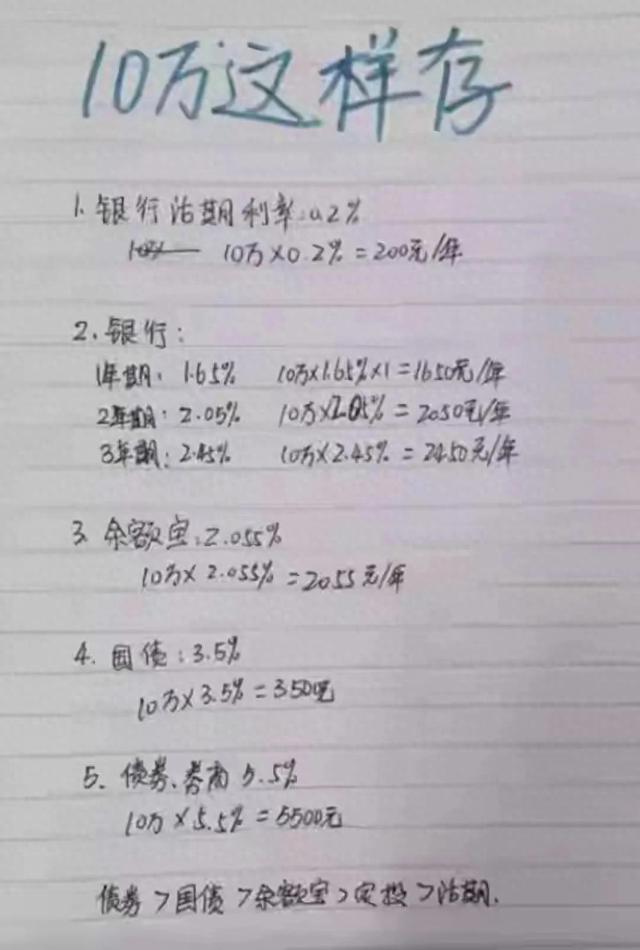 10万这样存
1. 银行活期利率:0.2%
10万×0.2%=200元/年
2. 银行:
1年期:1.65% 10万×1.65%×1=1650元/年
2年期:2.05% 10万×2.05%=2050元/年
3年期:2.45% 10万×2.45%=2450元/年
3. 余额宝:2.055%
10万×2.055%=2055元/年
4. 国债:3.5%
10万×3.5%=3500元
5. 债券、券商5.5%
10万×5.5%=5500元
债券>国债>余额宝>定投>活期.